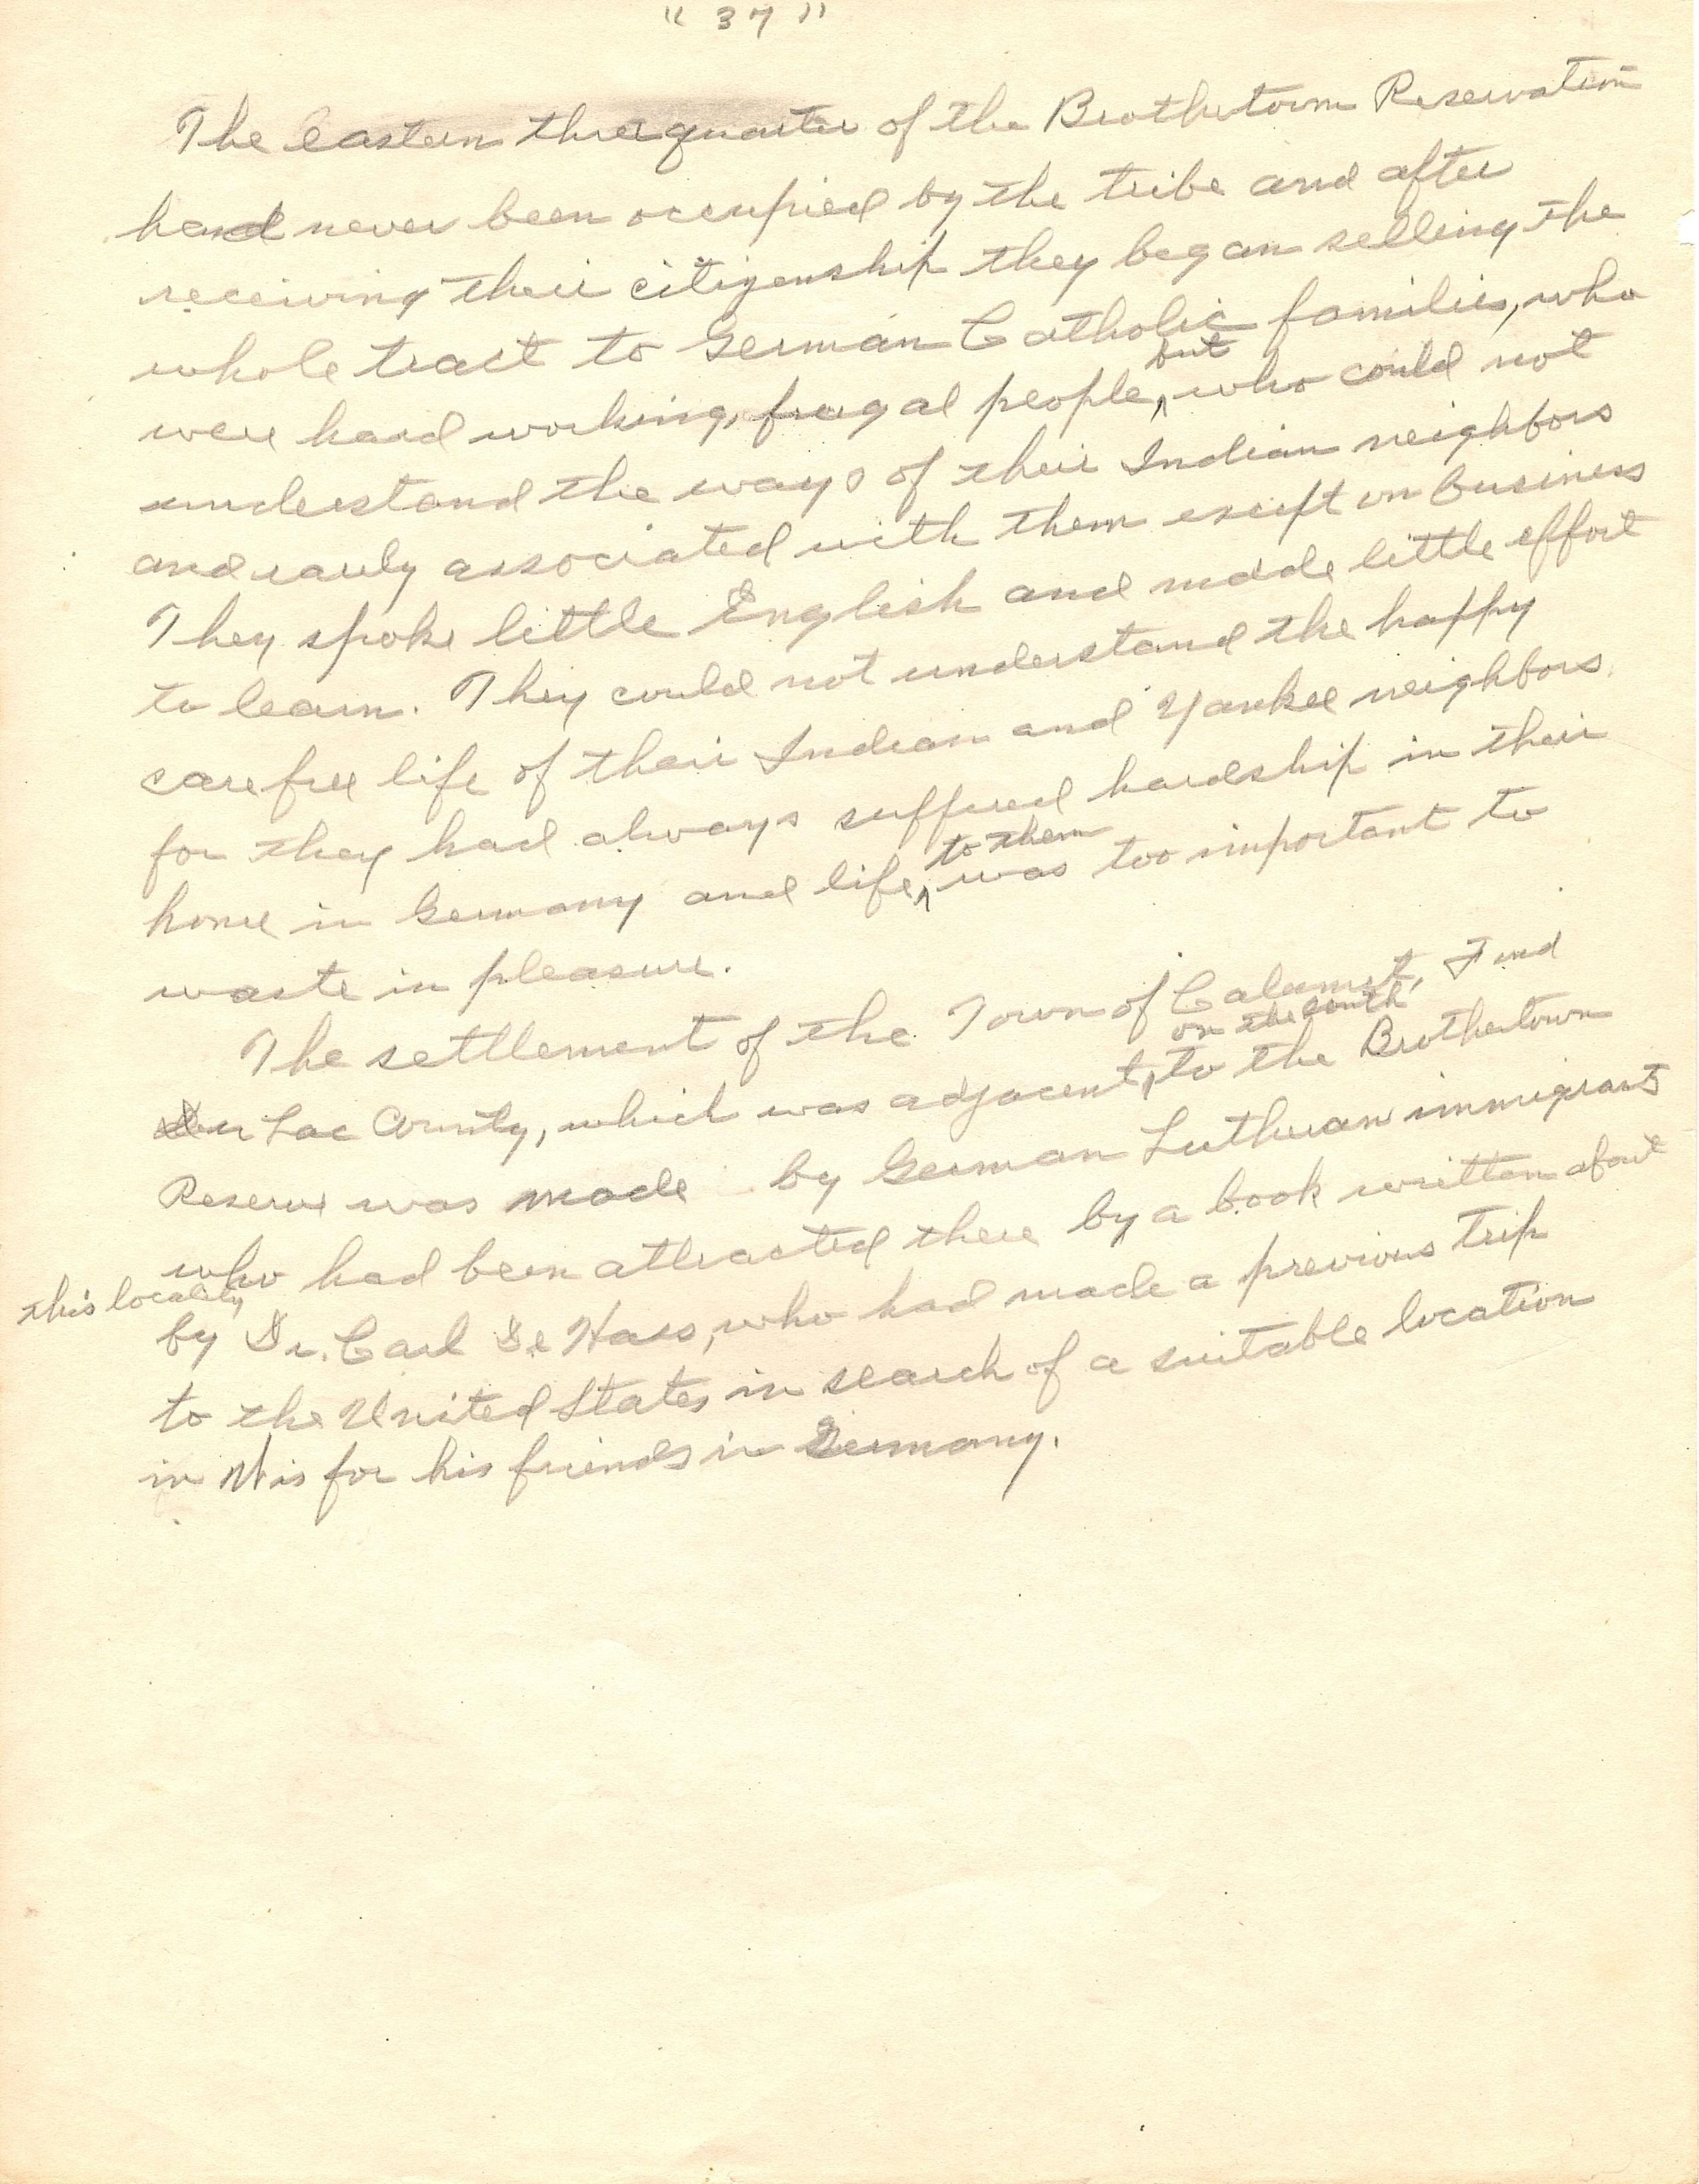 " 37 "
The eastern three quarter of the Brothertown Reservation
had never been occupied by the tribe and after
receiving their citizenship they began selling the
whole tract to German Catholic families, who
were hard working, frugal people, but who could not
understand the ways of their Indian neighbors
and rarely associated with them except on business
They spoke little English and made little effort
to learn. They could not understand the happy
carefree life of their Indian and Yankee neighbors.
for they had always suffered hardship in their
home in Germany and life, to them was too important to
waste in pleasure.
The settlement of the Town of Calumet, Fond
Du Lac County, which was adjacent, on the south to the Brothertown
Reserve was made by German Lutheran immigrants
who had been attracted there by a book written about
this locality by Dr. Carl De Hass, who had made a previous trip
to the United States in search of a suitable location
in Wis for his friends in Germany.